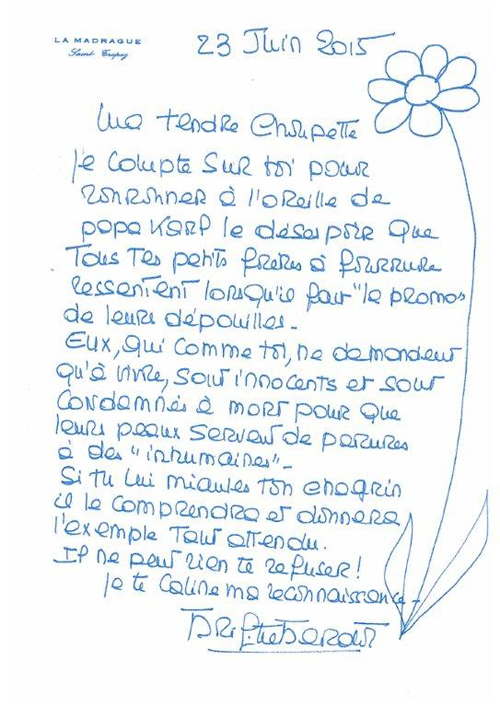 LA MADRAGUE
Saint Tropez
23 Juin 2015
Ma tendre Choupette
Je compte sur toi pour
ronronner à l'oreille de
papa Karl le désespoir que
Tous Tes petits frères à fourrure
ressentent lorsqu'il fait "la promo"
de leurs dépouilles.
Eux, qui comme toi, ne demandent
qu'à vivre, sont innocents et sont
condamnés à mort pour que
leurs peaux servent de parures
à des "inhumaines".
Si tu lui miaules ton chagrin
il le comprendra et donnera
l'exemple Tant attendu.
Il ne peut rien te refuser !
Je te câline ma reconnaissance -
Brigitte Bardot